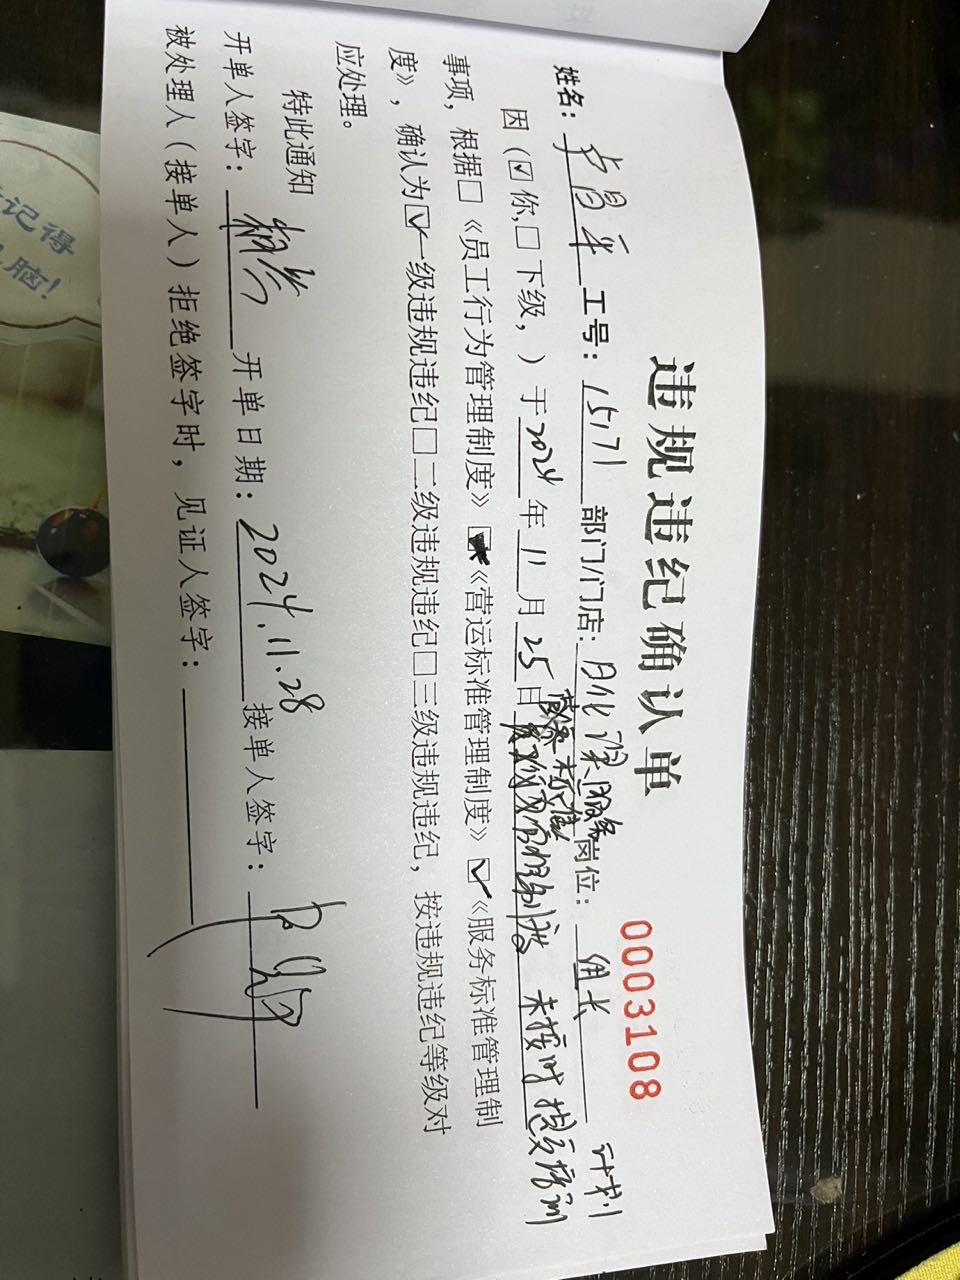 违规违纪确认单
0003108
姓名：卢昌平 工号：15171 部门/门店：服务 岗位：组长
因（☑你，☐下级，）于2024年11月25日 未按时提交培训计划
事项，根据☐《员工行为管理制度》《营运标准管理制度》☑《服务标准管理制
度》，确认为☑一级违规违纪☐二级违规违纪☐三级违规违纪，按违规违纪等级对
应处理。
特此通知
开单人签字： 开单日期：2024.11.28 接单人签字：
被处理人（接单人）拒绝签字时，见证人签字：
记得
脑！